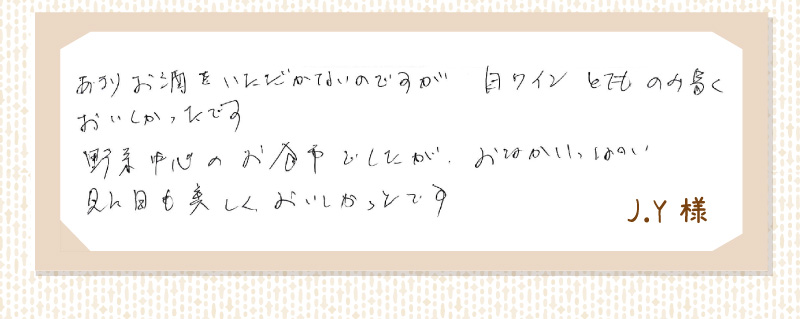 あまりお酒をいただかないのですが 白ワイン とても のみ易く
おいしかったです
野菜中心のお食事でしたが、おなかいっぱい
見た目も美しく、おいしかったです
J.Y 様